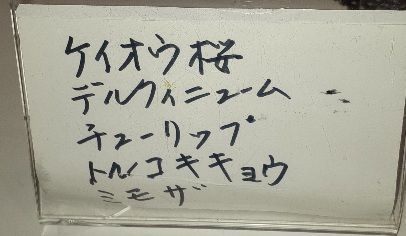 ケイオウ桜
デルフィニューム
チューリップ
トルコキキョウ
ミモザ